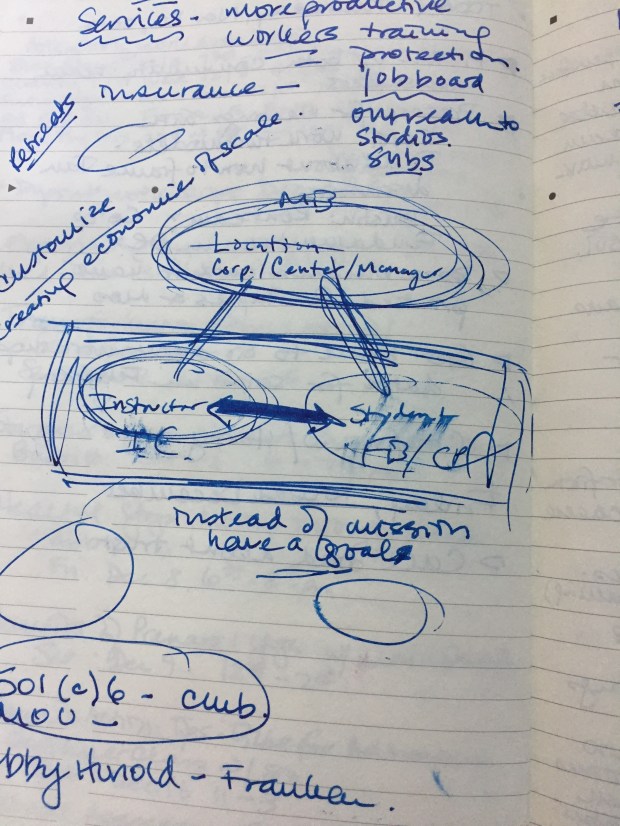 Services - more productive
workers training
protection.
insurance - Job board
outreach to
studios.
Subs
Retreats
Customize
creating economies of scale
MB
Location
Corp./Center/Manager
Instructor
Student
I C.
FB/
instead of mission
have a goal
501(c)6 - Club.
MOU -
Hunold -